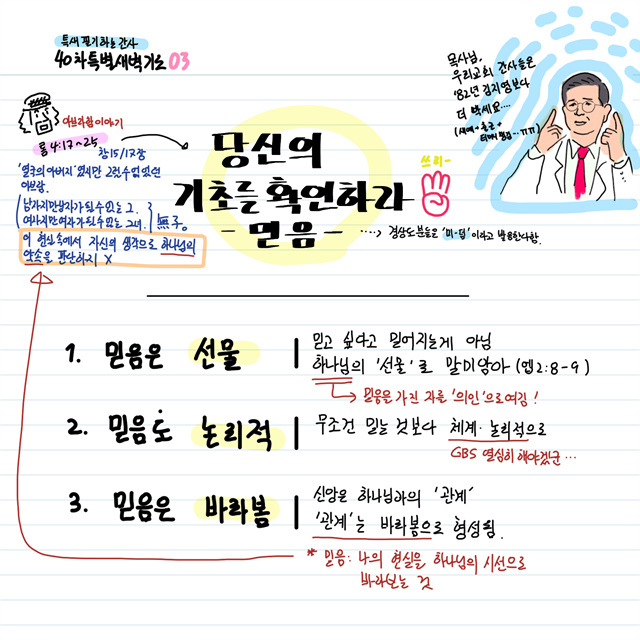 특새 필기하는 간사
40차특별새벽기도 03
아브라함 이야기
롬 4:17~25
창15/17장
'열국의 아버지' 였지만 그럴수없었던
아브람.
남자지만 남자가 될 수 없는 그.
여자지만 여자가 될 수 없는 그녀.
無子.
이 현실속에서 자신의 생각으로 하나님의
약속을 판단하지 X
당신의
기초를 확인하라
- 믿음 -
쓰리-
····› 경상도분들은 '미-덤' 이라고 발음한다함.
목사님,
우리교회 간사들은
'82년 김지영보다
더 박세요....
(새벽+출근+
ㅠㅠ)
1. 믿음은 선물
믿고 싶다고 믿어지는게 아님
하나님의 '선물'로 말미암아 (엡2:8-9)
믿음을 가진 자를 '의인'으로여김!
2. 믿음도 논리적
무조건 믿는 것보다 체계·논리적으로
GBS 열심히 해야겠군...
3. 믿음은 바라봄
신앙은 하나님과의 '관계'
'관계'는 바라봄으로 형성됨.
* 믿음: 나의 현실을 하나님의 시선으로
바라보는 것